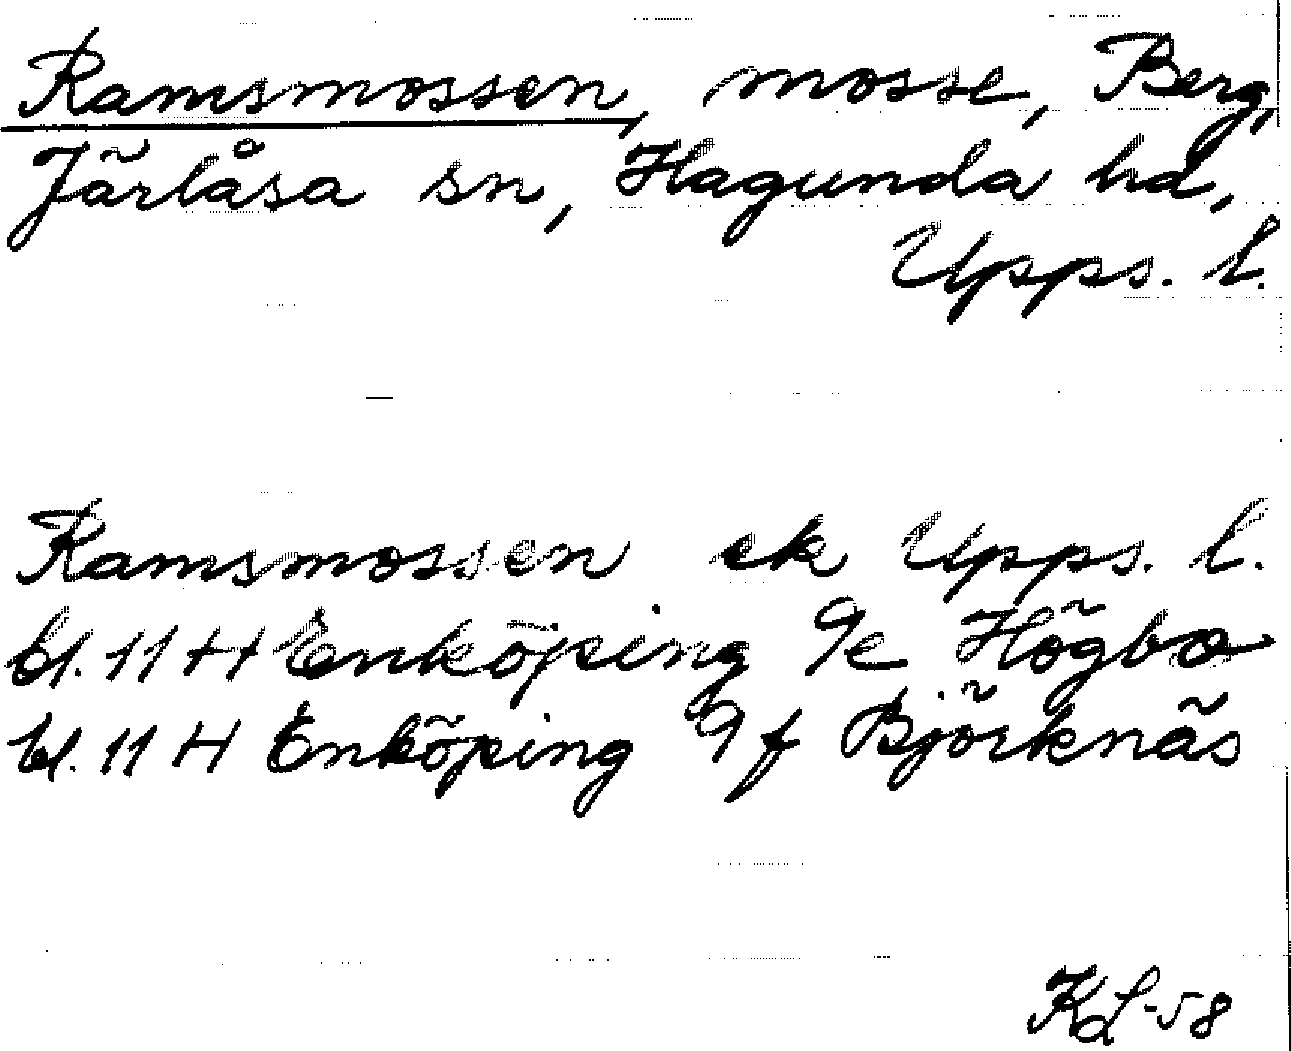 Ramsmossen, mosse, Berg,
Järlåsa sn, Hagunda hd,
Upps. l.
Ramsmossen ek Upps. l.
bl. 11 H Enköping 9e Högbo
bl. 11 H Enköping 9f Björknäs
KL-58